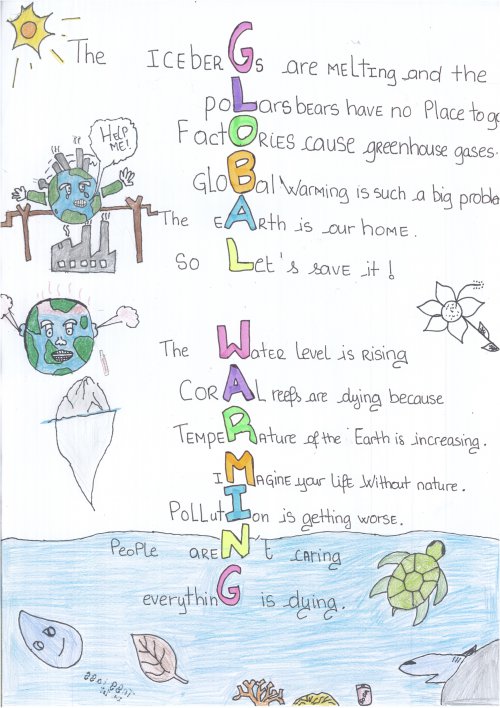 HELP ME!
The ICEberGs are MELTING and the
poLarsbears HAVE no Place to go
FactORIES cause greenhouse gases.
GLOBal Warming is such a big proble
The EARth is our HOME.
So Let's save it!
The WatER level is Rising
CORAL reefs are dying because
TEMPERature of the Earth is increasing.
IMAGINE your life without nature.
PollutIon is getting worse.
PEOPlE AREN't CARing
everythinG is dying.